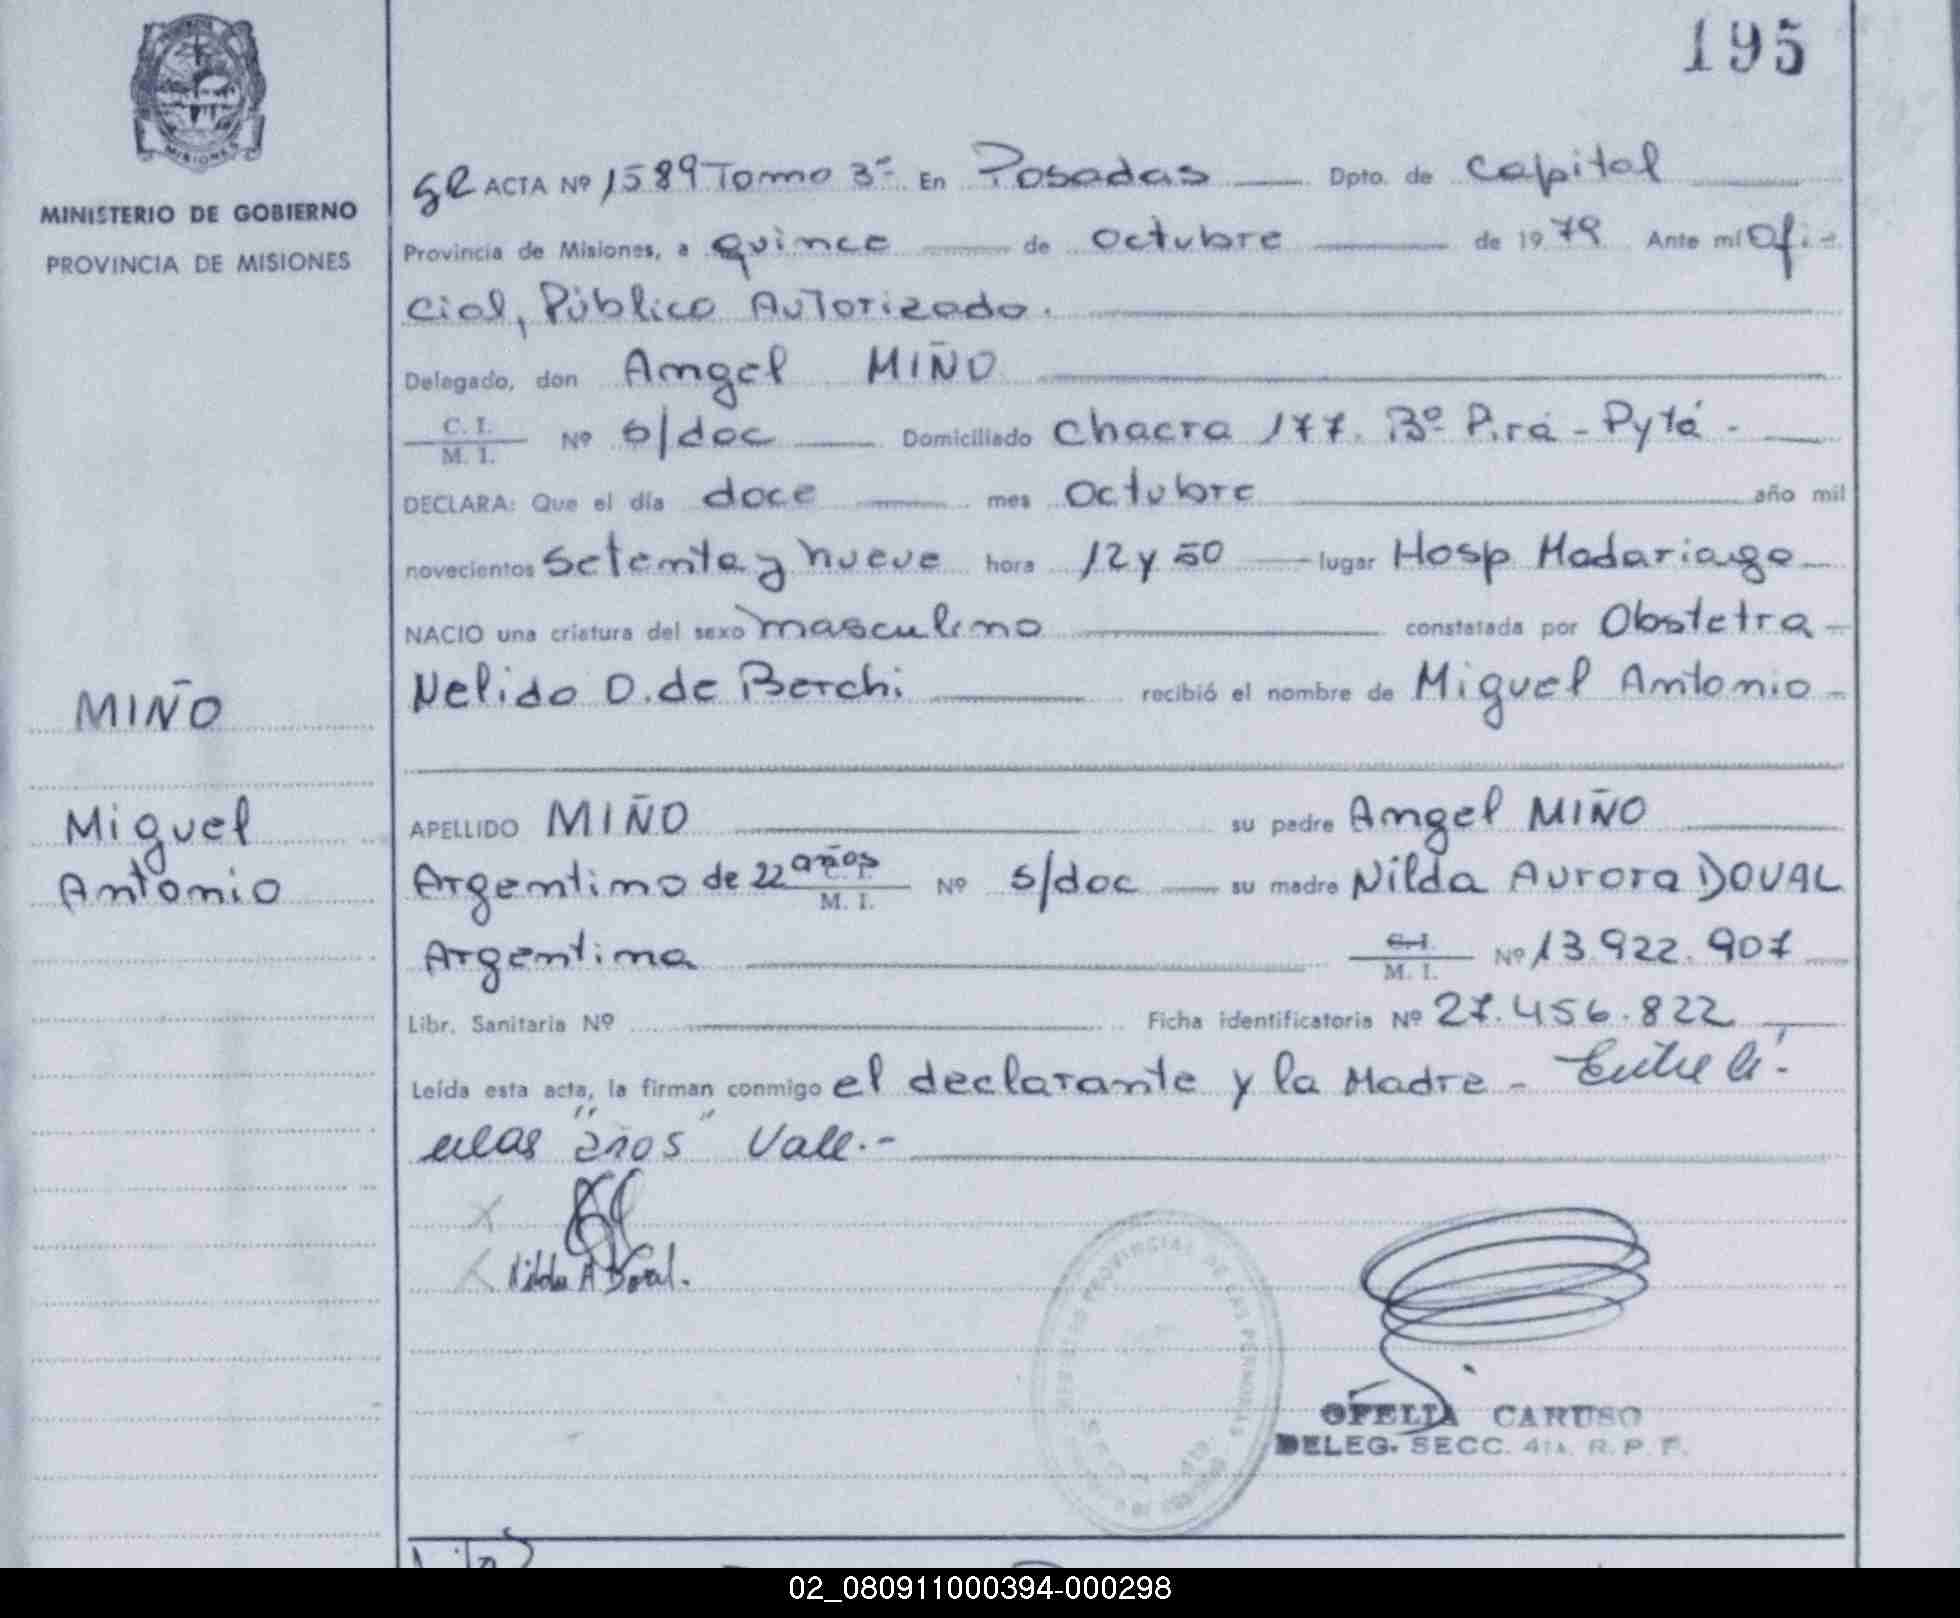 195
MISIONES
MINISTERIO DE GOBIERNO
PROVINCIA DE MISIONES
ACTA Nº 1589 Tomo 3º En Posadas Dpto. de Capital
Provincia de Misiones, a quince de Octubre de 1979 Ante mí Ofi-
cial, Público Autorizado.
Delegado, don Angel MIÑO
C. I.
M. I. Nº s/doc Domiciliado Chacra 177. Bº Pirá-Pytá.
DECLARA: Que el día doce mes Octubre año mil
novecientos setenta y nueve hora 12 y 50 lugar Hosp Madariaga
NACIO una criatura del sexo masculino constatada por Obstetra
Nelida D. de Berchi recibió el nombre de Miguel Antonio
MIÑO
Miguel
Antonio
APELLIDO MIÑO su padre Angel MIÑO
Argentino de 22 años M. I. Nº s/doc su madre Nilda Aurora DOVAL
Argentina C. I. M. I. Nº 13.922.907
Libr. Sanitaria Nº Ficha identificatoria Nº 27.456.822
Leída esta acta, la firman conmigo el declarante y la Madre - Entre lí-
neas "años" Vale.-
X
X Nilda A Doval.
PROVINCIAL DE LAS PERSONAS
OFELIA CARUSO
DELEG. SECC. 4ta. R. P. P.
02_080911000394-000298